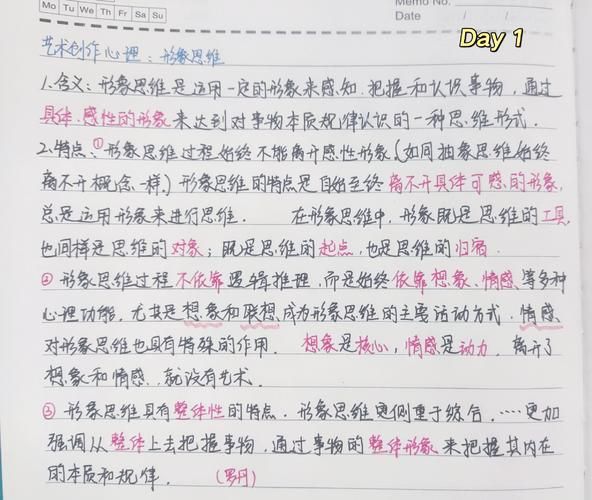 Mo Tu We Th Fr Sa Su
Memo No.
Date / /
Day 1
艺术创作心理：形象思维
1.含义：形象思维是运用一定的形象来感知.把握和认识事物，通过
具体.感性的形象来达到对事物本质规律认识的一种思维形式.
2.特点：①形象思维过程始终不能离开感性形象(如同抽象思维始终
离不开概念一样.)形象思维的特点是自始至终离不开具体可感的形象，
总是运用形象来进行思维. 在形象思维中，形象既是思维的工具，
也同样是思维的对象；既是思维的起点，也是思维的归宿.
②形象思维过程不依靠逻辑推理，而是始终依靠想象、情感等多种
心理功能，尤其是想象和联想成为形象思维的主要活动方式.情感
对形象思维也具有特殊的作用. 想象是核心，情感是动力，离开了
想象和情感，就没有艺术.
③形象思维具有整体性的特点.形象思维更侧重于综合，……更加
强调从整体上去把握事物，通过事物的整体形象来把握其内在
的本质和规律. (罗丹)